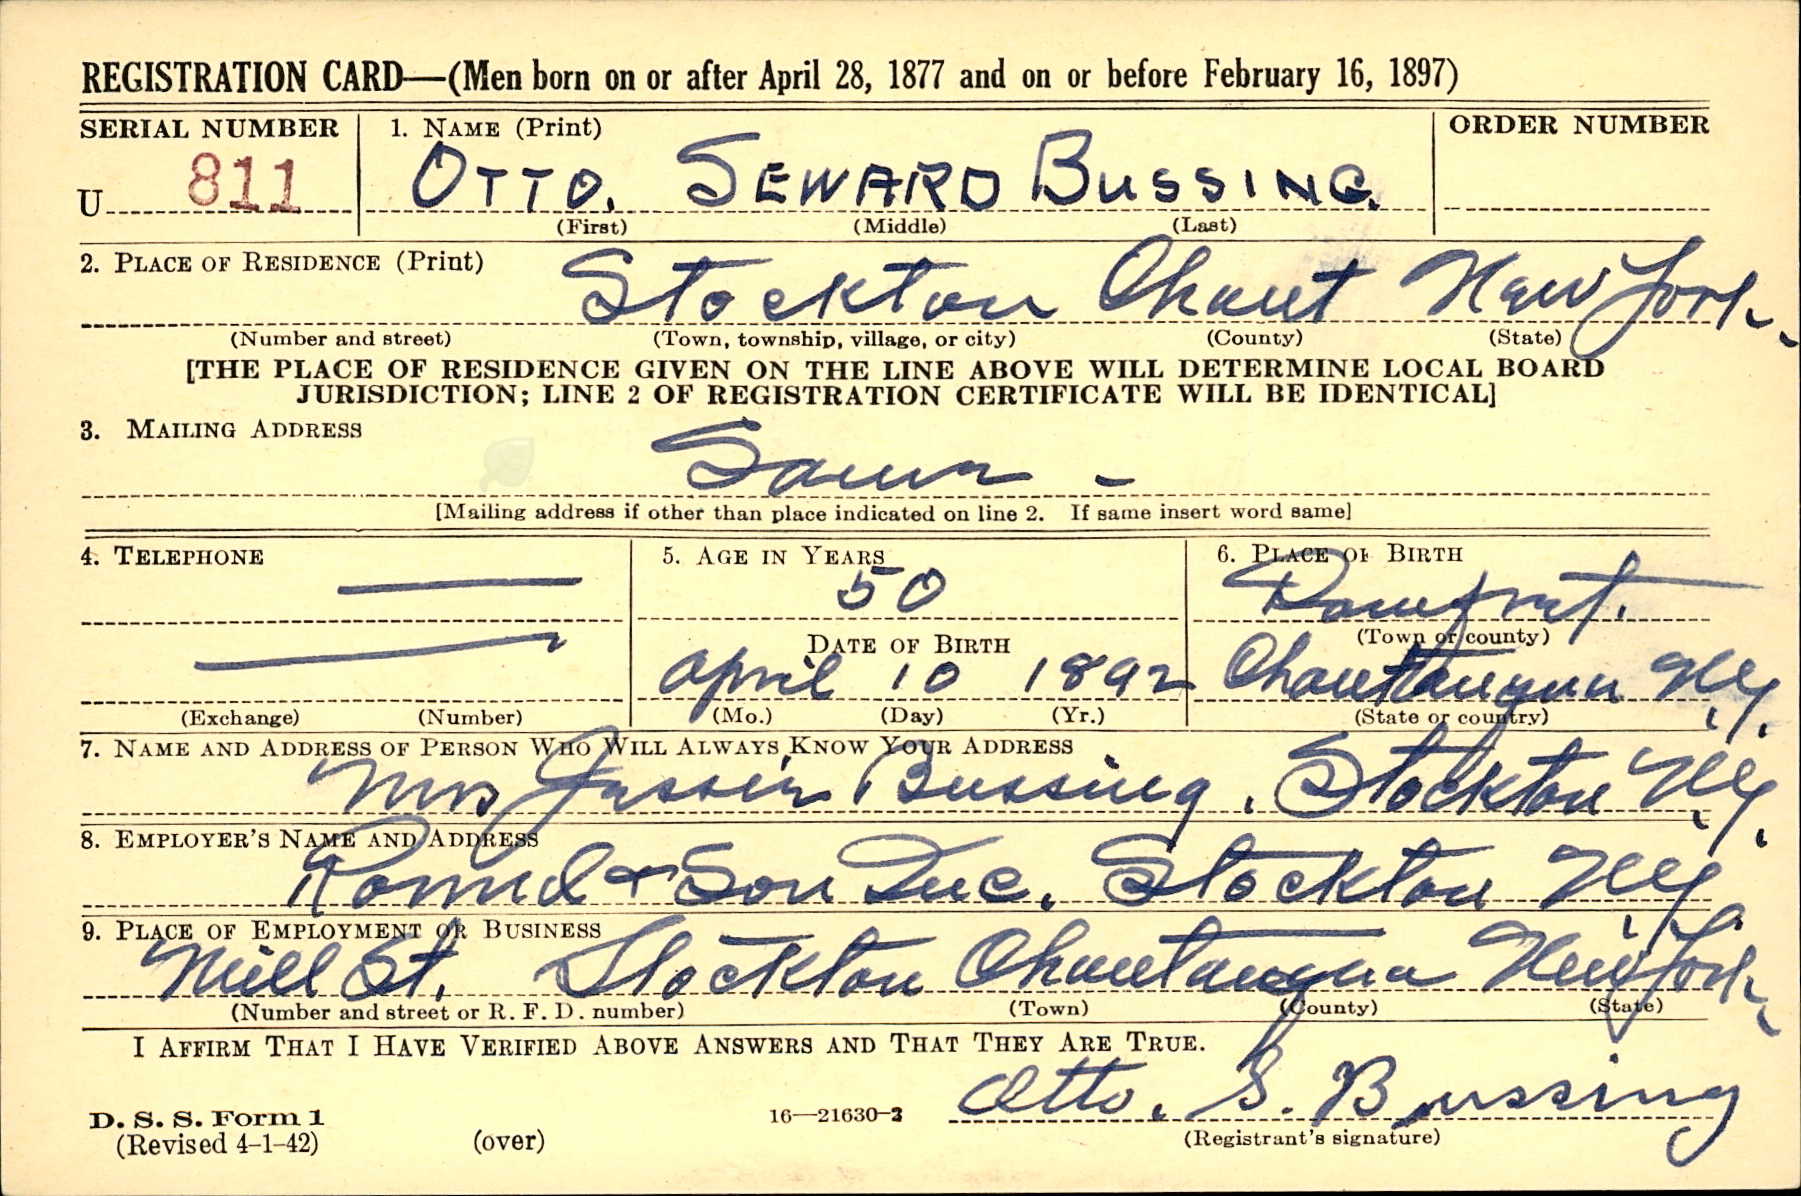 REGISTRATION CARD—(Men born on or after April 28, 1877 and on or before February 16, 1897)
SERIAL NUMBER 1. NAME (Print) ORDER NUMBER
U 811 OTTO. SEWARD BUSSING.
(First) (Middle) (Last)
2. PLACE OF RESIDENCE (Print)
Stockton Chaut New York.
(Number and street) (Town, township, village, or city) (County) (State)
[THE PLACE OF RESIDENCE GIVEN ON THE LINE ABOVE WILL DETERMINE LOCAL BOARD
JURISDICTION; LINE 2 OF REGISTRATION CERTIFICATE WILL BE IDENTICAL]
3. MAILING ADDRESS
Same –
[Mailing address if other than place indicated on line 2. If same insert word same]
4. TELEPHONE 5. AGE IN YEARS 6. PLACE OF BIRTH
50 Pomfret.
(Town or county)
DATE OF BIRTH
April 10 1892 Chautauqua N.Y.
(Exchange) (Number) (Mo.) (Day) (Yr.) (State or country)
7. NAME AND ADDRESS OF PERSON WHO WILL ALWAYS KNOW YOUR ADDRESS
Mrs Jessie Bussing. Stockton N.Y.
8. EMPLOYER'S NAME AND ADDRESS
& Son Inc. Stockton N.Y.
9. PLACE OF EMPLOYMENT OR BUSINESS
Mill St. Stockton Chautauqua New York.
(Number and street or R. F. D. number) (Town) (County) (State)
I AFFIRM THAT I HAVE VERIFIED ABOVE ANSWERS AND THAT THEY ARE TRUE.
Otto. S. Bussing
D. S. S. Form 1
(Revised 4-1-42) (over) 16—21630-2 (Registrant's signature)